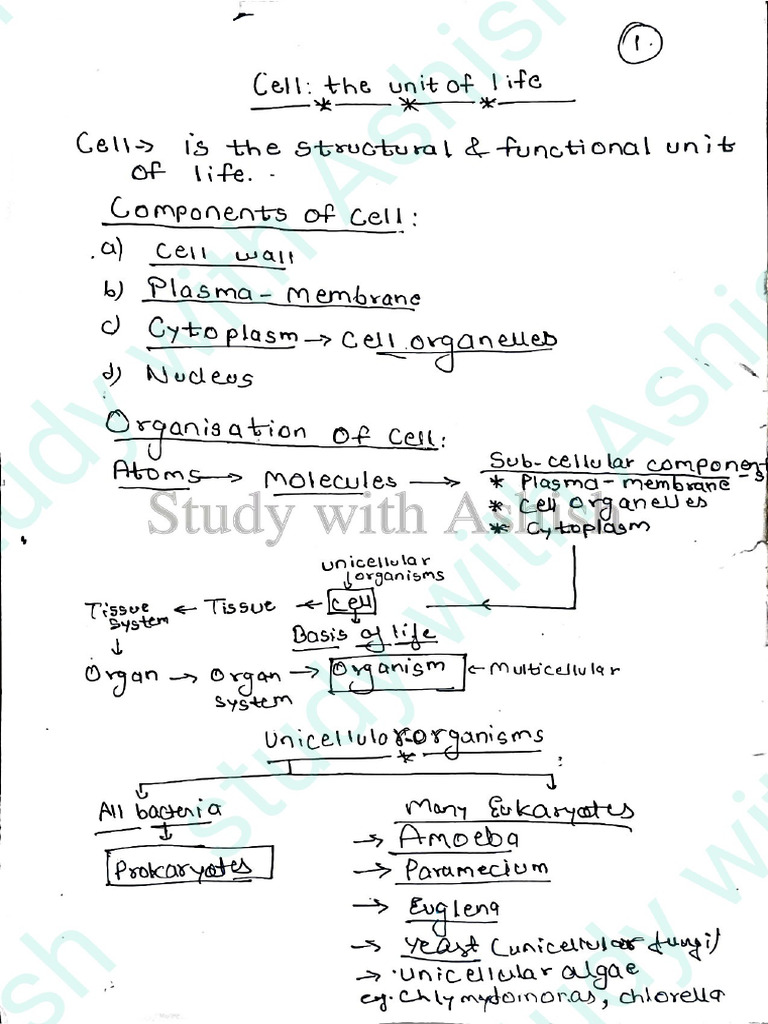 1.
Cell: the unit of life
Cell → is the structural & functional unit
of life.
Components of cell:
a) Cell wall
b) Plasma - membrane
c) Cytoplasm → Cell organelles
d) Nucleus
Organisation of cell:
Atoms → Molecules →
Sub-cellular components
* Plasma - membrane
* Cell organelles
* Cytoplasm
Study with Ashish
unicellular
organisms
Tissue system ← Tissue ← Cell ←
Basis of life
Organ → Organ system → Organism ← Multicellular
Unicellular-organisms
All bacteria
Prokaryotes
Many Eukaryotes
→ Amoeba
→ Paramecium
→ Euglena
→ Yeast (unicellular fungi)
→ unicellular algae
eg. Chlymydomonas, chlorella
Study with Ashish